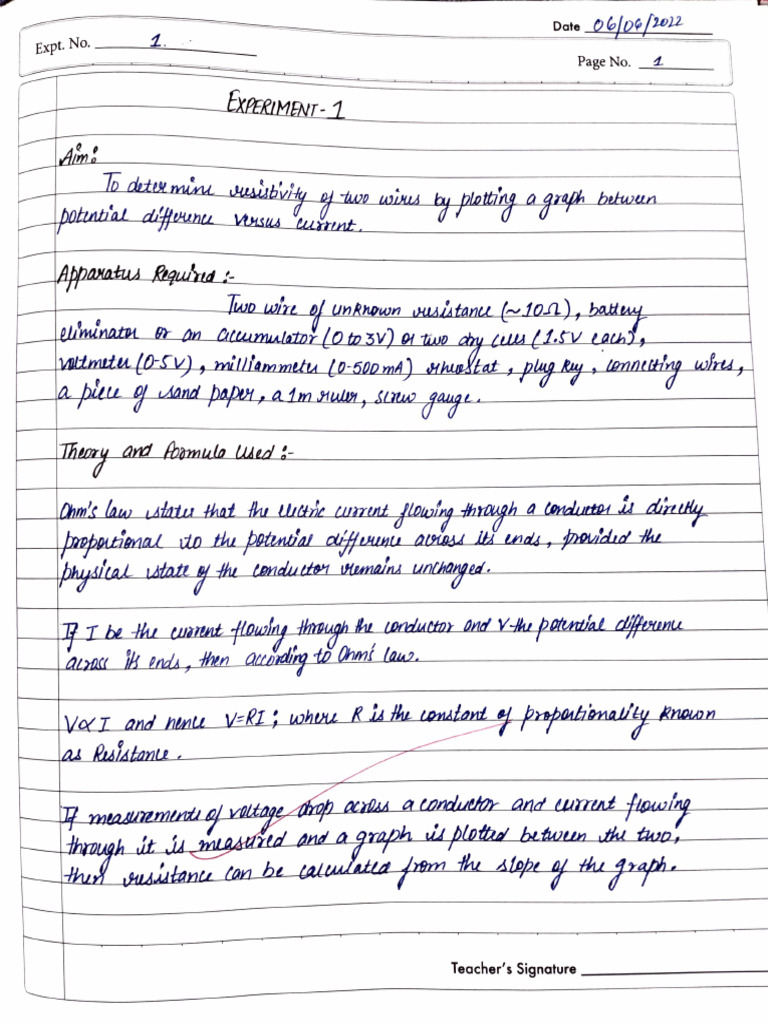 Date 06/06/2022
Expt. No. 1.
Page No. 1
EXPERIMENT-1
Aim:
To determine resistivity of two wires by plotting a graph between
potential difference versus current.
Apparatus Required:-
Two wire of unknown resistance (~10Ω), battery
eliminator or an accumulator (0 to 3V) or two dry cells (1.5V each),
voltmeter (0-5V), milliammeter (0-500mA) rheostat, plug key, connecting wires,
a piece of sand paper, a 1m ruler, screw gauge.
Theory and Formula Used:-
Ohm's law states that the electric current flowing through a conductor is directly
proportional to the potential difference across its ends, provided the
physical state of the conductor remains unchanged.
If I be the current flowing through the conductor and V the potential difference
across its ends, then according to Ohm's law.
V∝I and hence V=RI; where R is the constant of proportionality known
as Resistance.
If measurements of voltage drop across a conductor and current flowing
through it is measured and a graph is plotted between the two,
then resistance can be calculated from the slope of the graph.
Teacher's Signature